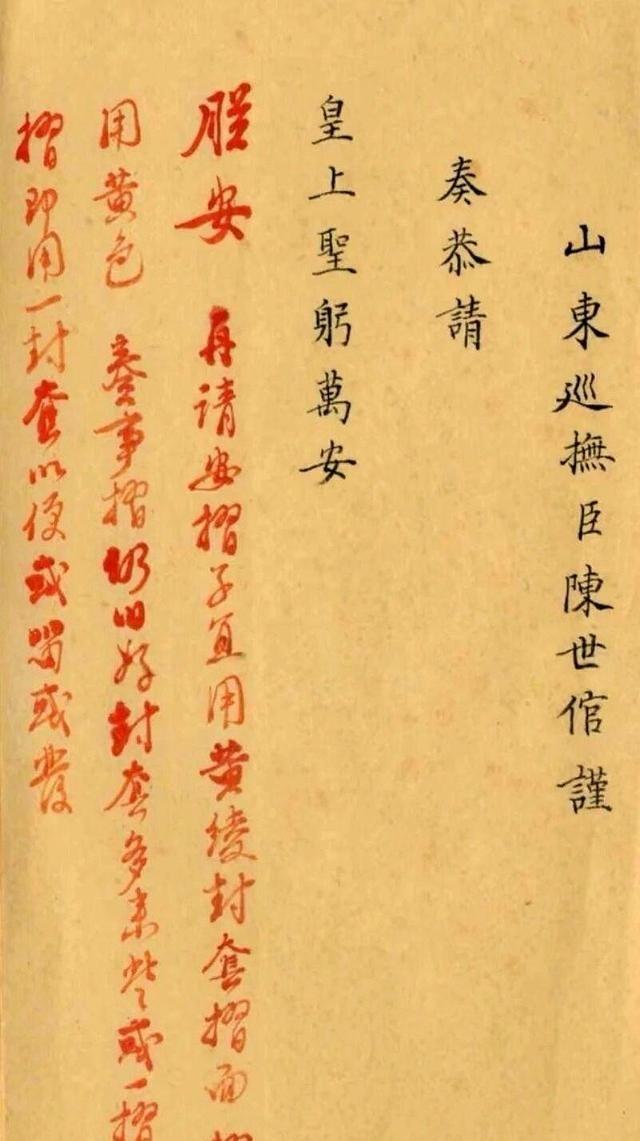 山東巡撫臣陳世倌謹
奏恭請
皇上聖躬萬安
朕安 再請安摺子宜用黄綾封套摺面
用黄色 奏事摺仍旧好封套多来些或一摺
摺即用一封套以便或留或發